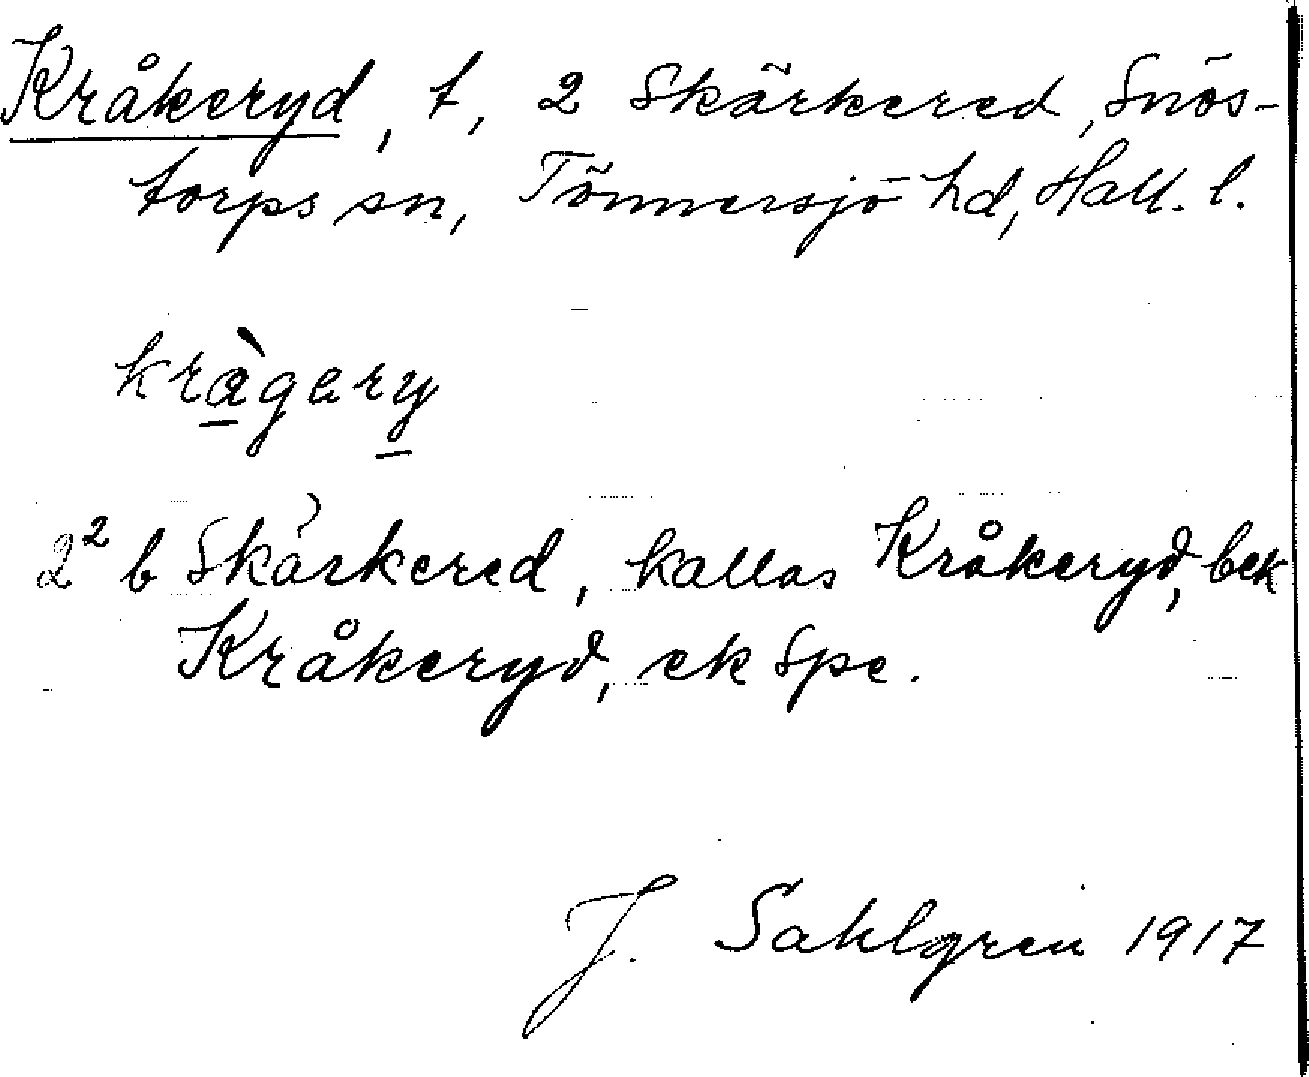 Kråkeryd, t, 2 Skärkered, Snös-
torps sn, Tönnersjö hd, Hall. l.
kràgary
2² b Skärkered, kallas Kråkeryd, bek
Kråkeryd, ek Spe.
J. Sahlgren 1917